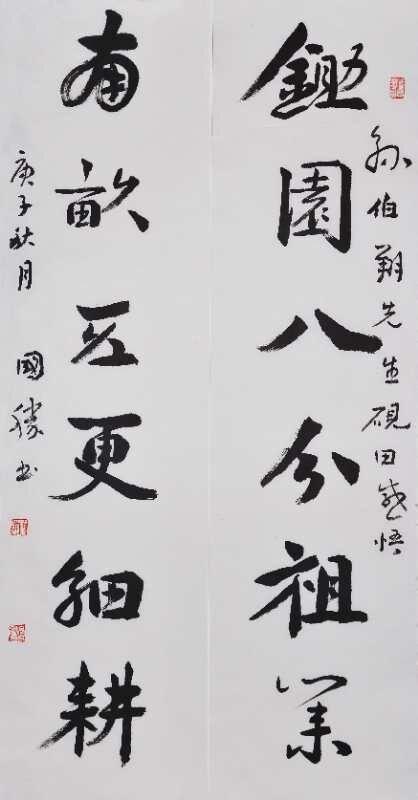 鋤園八分祖業
孫伯翔先生硯田感悟
南畝五更細耕
庚子秋月 國勝書